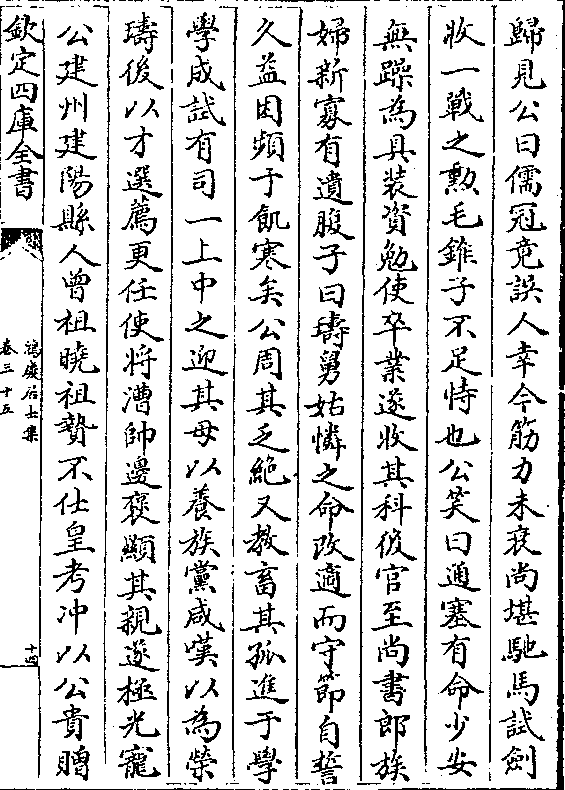 歸見公曰儒冠竟誤人幸今筋力未衰尚堪馳馬試劍
收一戰之勲毛錐子不足恃也公笑曰通塞有命少安
無躁為具裝資勉使卒業遂收其科後官至尚書郎族
婦新寡有遺腹子曰璹舅姑憐之命改適而守節自誓
久益困頻于飢寒矣公周其乏絶又教畜其孤進于學
學成試有司一上中之迎其母以養族黨咸嘆以為榮
璹後以才選薦更任使將漕帥邊褒顯其親遂極光寵
公建州建陽縣人曾祖曉祖贄不仕皇考冲以公貴贈
欽定四庫全書
鴻慶居士集
卷三十五
十四